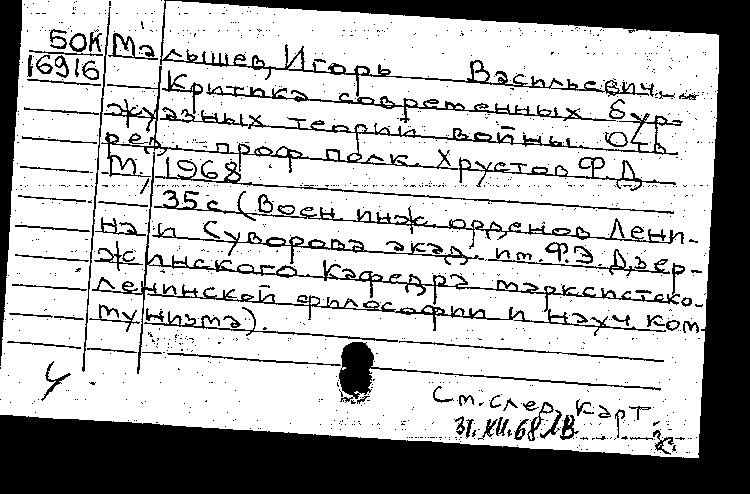 50К Малышев, Игорь Васильевич.
16916
Критика современных бур-
жуазных теорий войны. Отв.
ред. проф. полк. Хрустов Ф.Д.
М., 1968
35 с. (Воен. инж. орденов Лени-
на и Суворова акад. им. Ф.Э. Дзер-
жинского. Кафедра марксистско-
ленинской философии и науч. ком-
мунизма).
См. след. карт.
31.XII.68